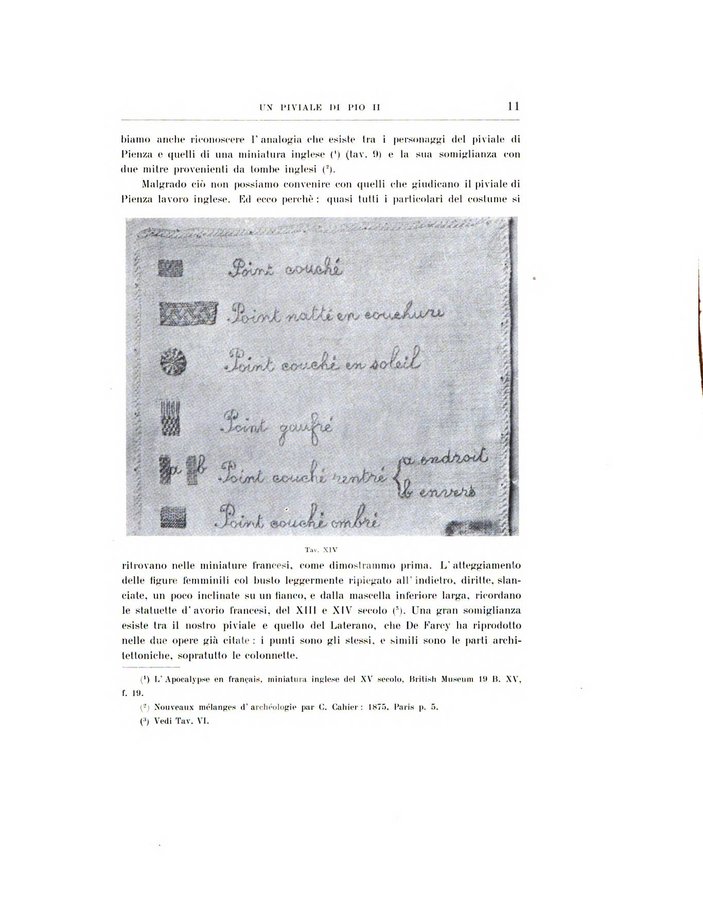 UN PIVIALE DI PIO II 11
biamo anche riconoscere l'analogia che esiste tra i personaggi del piviale di
Pienza e quelli di una miniatura inglese (¹) (tav. 9) e la sua somiglianza con
due mitre provenienti da tombe inglesi (²).
Malgrado ciò non possiamo convenire con quelli che giudicano il piviale di
Pienza lavoro inglese. Ed ecco perchè : quasi tutti i particolari del costume si
Point couché
Point natté en couchure
Point couché en soleil
Point gaufré
a b Point couché rentré { a endroit
b envers
Point couché ombré
Tav. XIV
ritrovano nelle miniature francesi, come dimostrammo prima. L'atteggiamento
delle figure femminili col busto leggermente ripiegato all'indietro, diritte, slan-
ciate, un poco inclinate su un fianco, e dalla mascella inferiore larga, ricordano
le statuette d'avorio francesi, del XIII e XIV secolo (³). Una gran somiglianza
esiste tra il nostro piviale e quello del Laterano, che De Farey ha riprodotto
nelle due opere già citate : i punti sono gli stessi, e simili sono le parti archi-
tettoniche, sopratutto le colonnette.
(¹) L'Apocalypse en français, miniatura inglese del XV secolo, British Museum 19 B. XV,
f. 19.
(²) Nouveaux mélanges d'archéologie par C. Cahier : 1875, Paris p. 5.
(³) Vedi Tav. VI.